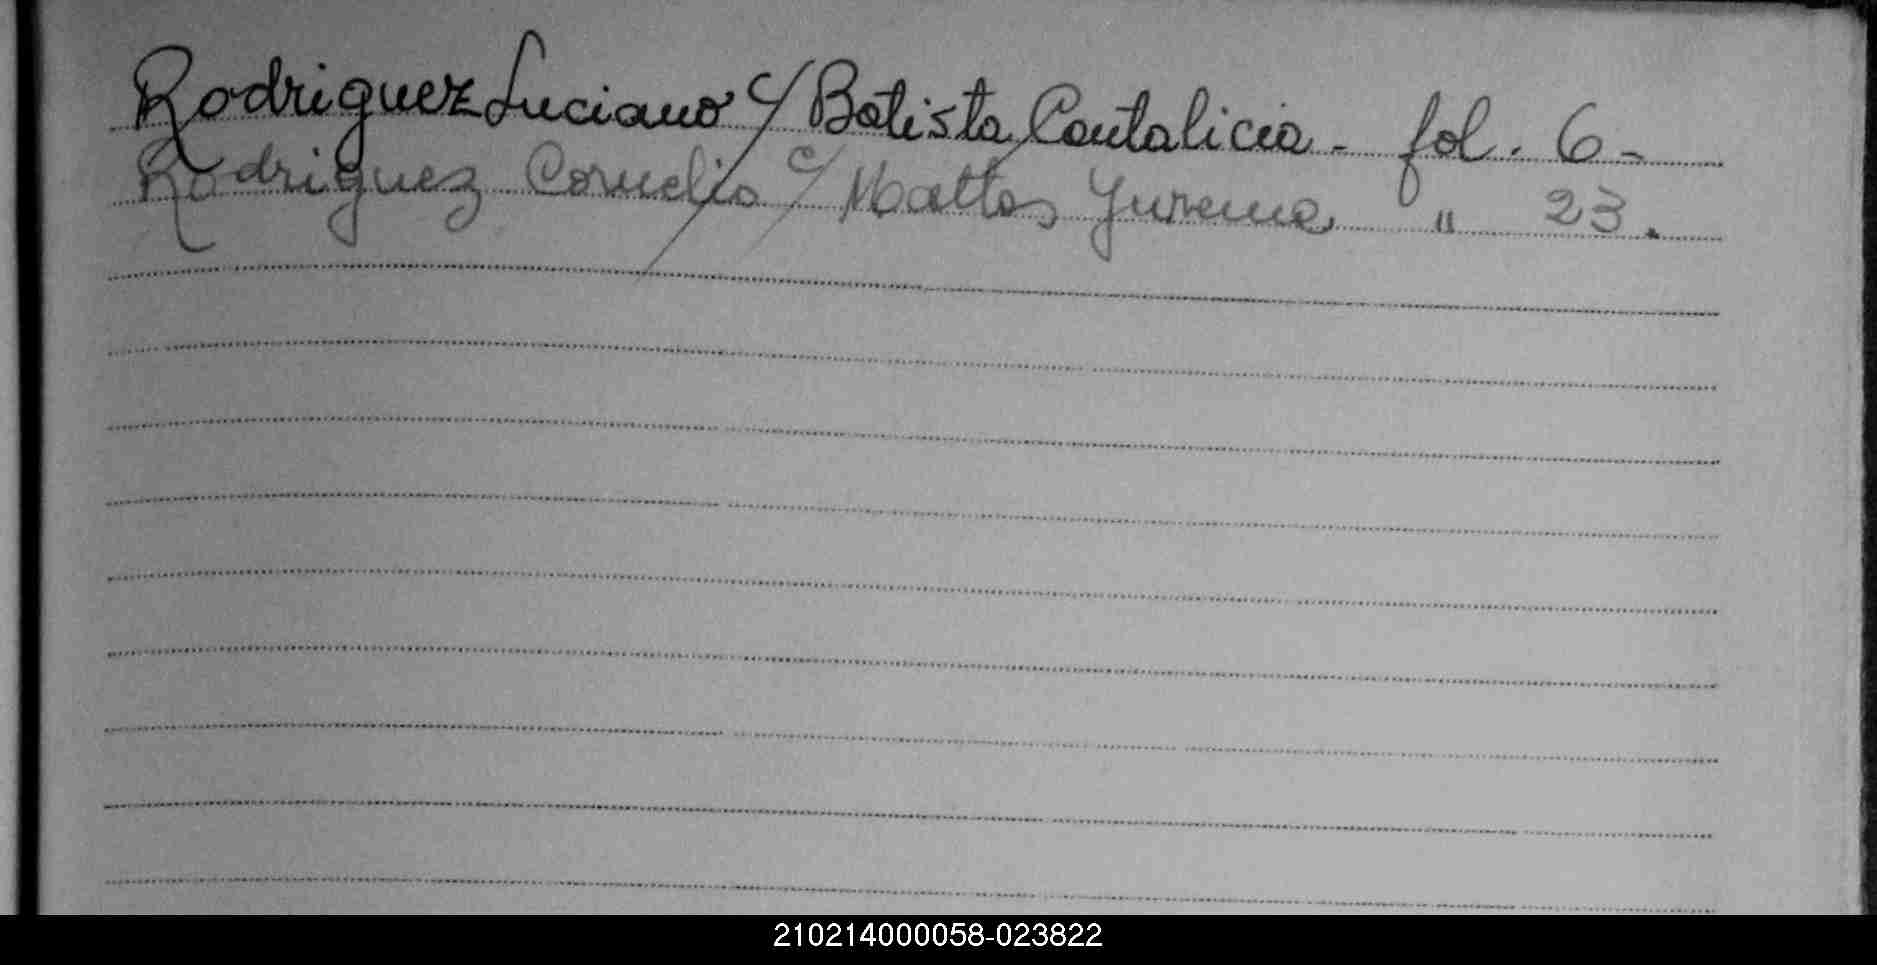 Rodriguez Luciano c/ Batista Cantalicia - fol. 6 -
Rodriguez Cornelio c/ Mattos Jurema " 23.
210214000058-023822